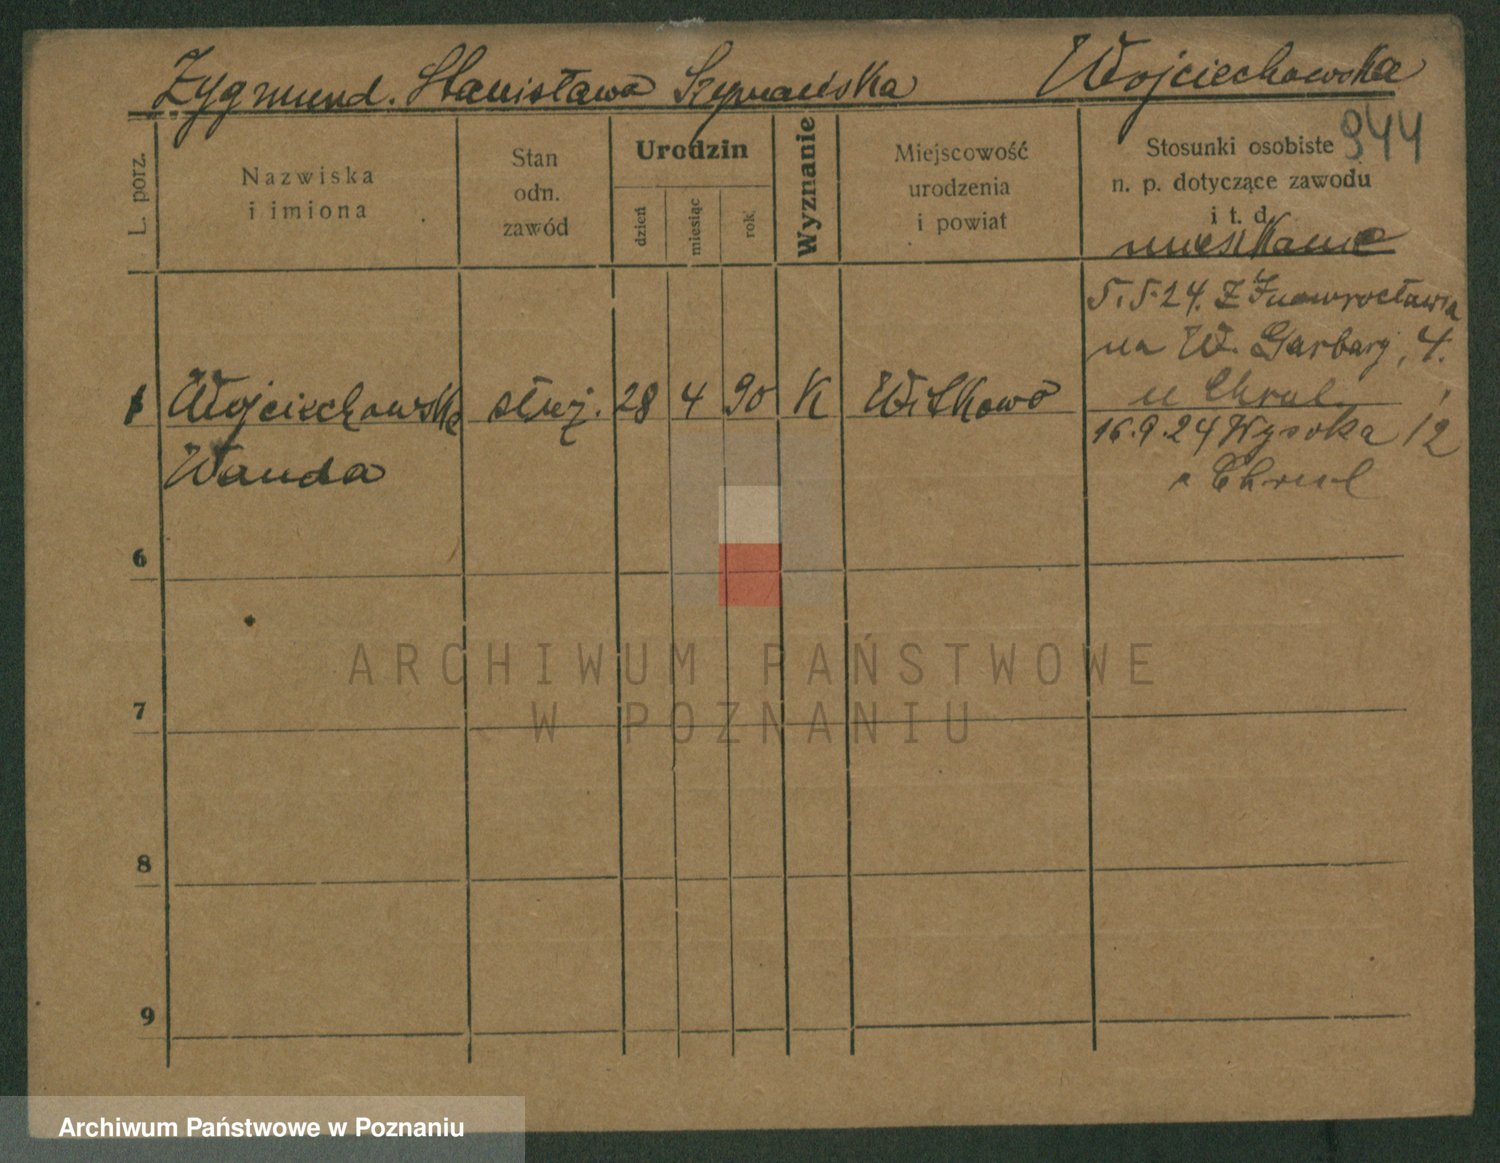 Zygmund. Stanisława Szymańska Wojciechowska
944
L. porz.
Nazwiska
i imiona
Stan
odn.
zawód
Urodzin
dzień
miesiąc
rok
Wyznanie
Miejscowość
urodzenia
i powiat
Stosunki osobiste
n. p. dotyczące zawodu
i t. d.
mieszkanie
5.5.24. z Inowrocławia
na W. Garbary, 4.
u Chrul
Wojciechowska służ. 28 4 90 K Witkowo
16.9.24 Wysoka 12
Wanda
Chrul
6
7
8
9
ARCHIWUM PAŃSTWOWE
W POZNANIU
Archiwum Państwowe w Poznaniu